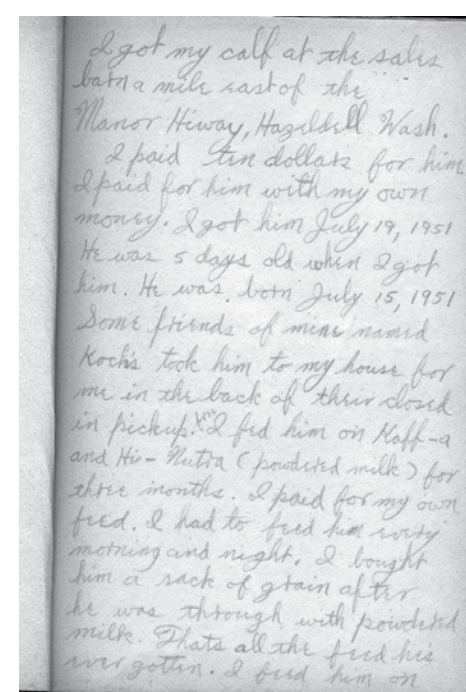 I got my calf at the sales
barn a mile east of the
Manor Hiway, Hazeldell Wash.
I paid ten dollars for him
I paid for him with my own
money. I got him July 19, 1951
He was 5 days old when I got
him. He was born July 15, 1951
Some friends of mine named
Koch's took him to my house for
me in the back of their closed
in pickup. I fed him on Kaff-a
and Hi-Nutra (powdered milk) for
three months. I paid for my own
feed. I had to feed him every
morning and night. I bought
him a sack of grain after
he was through with powdered
milk. Thats all the feed his
ever gotten. I feed him on